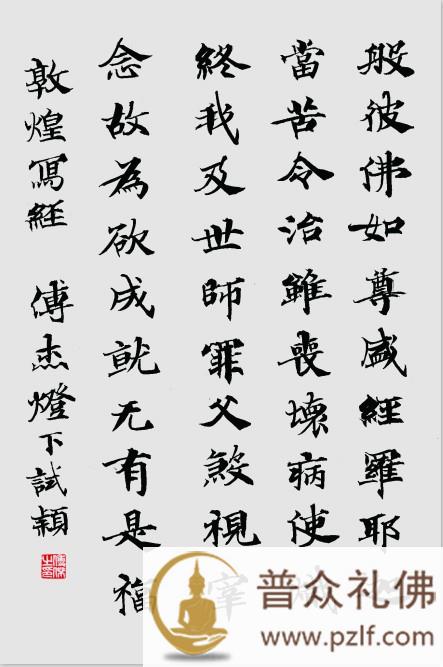 般彼佛如尊盛經羅耶
當苦令治雖喪壞病使
終我及世師罪父煞視宰
念故為欲成就无有是福
敦煌寫經 傅杰燈下試穎
普众礼佛
www.pzlf.com